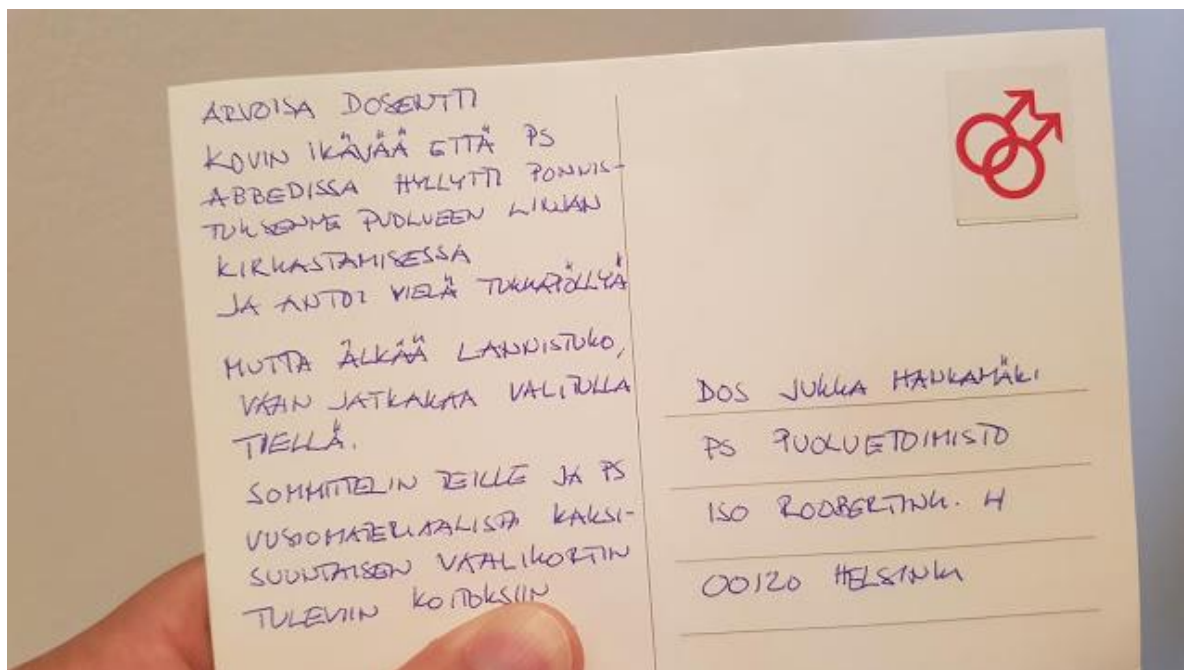 ARVOISA DOSENTTI
KOVIN IKÄVÄÄ ETTÄ PS
ABBEDISSA HYLLYTTI PONNIS-
TUKSENNE PUOLUEEN LINJAN
KIRKASTAMISESSA
JA ANTOI VIELÄ TUKKAPÖLLYÄ
MUTTA ÄLKÄÄ LANNISTUKO,
VAAN JATKAKAA VALITULLA
TIELLÄ.
SOMMITTELIN TEILLE JA PS
VUSIOMATERIAALISTA KAKSI-
SUUNTAISEN VAALIKORTIN
TULEVIIN KOITOKSIIN
DOS JUKKA HANKAMÄKI
PS PUOLUETOIMISTO
ISO ROOBERTINK. 4
00120 HELSINKI